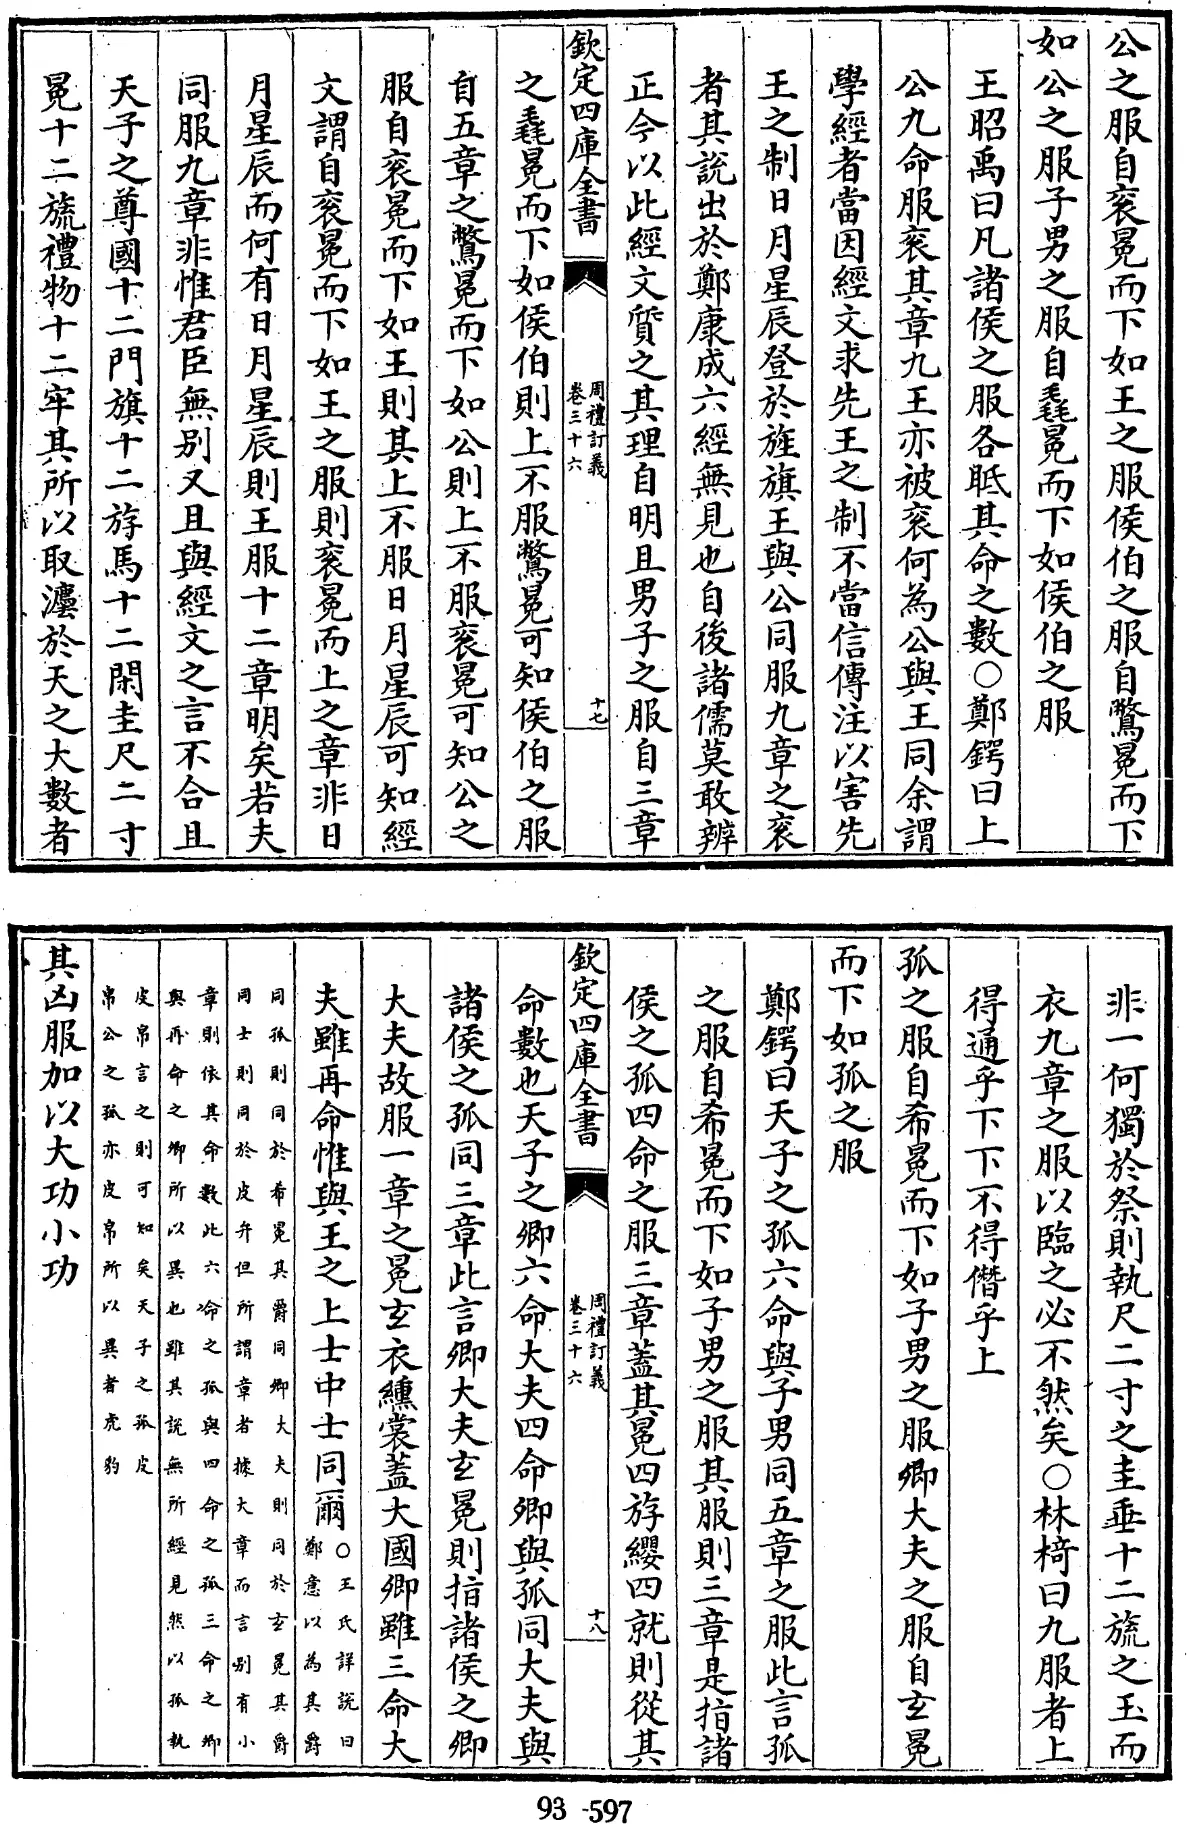 公之服自衮冕而下如王之服侯伯之服自鷩冕而下
如公之服子男之服自毳冕而下如侯伯之服
王昭禹曰凡諸侯之服各眡其命之數○鄭鍔曰上
公九命服衮其章九王亦被衮何為公與王同余謂
學經者當因經文求先王之制不當信傳注以害先
王之制日月星辰登於旌旗王與公同服九章之衮
者其說出於鄭康成六經無見也自後諸儒莫敢辨
正今以此經文質之其理自明且男子之服自三章
欽定四庫全書
周禮訂義
卷三十六
十七
之毳冕而下如侯伯則上不服鷩冕可知侯伯之服
自五章之鷩冕而下如公則上不服衮冕可知公之
服自衮冕而下如王則其上不服日月星辰可知經
文謂自衮冕而下如王之服則衮冕而上之章非日
月星辰而何有日月星辰則王服十二章明矣若夫
同服九章非惟君臣無别又且與經文之言不合且
天子之尊國十二門旗十二斿馬十二閑圭尺二寸
冕十二旒禮物十二牢其所以取灋於天之大數者
非一何獨於祭則執尺二寸之圭垂十二旒之玉而
衣九章之服以臨之必不然矣○林椅曰九服者上
得通乎下下不得僭乎上
孤之服自希冕而下如子男之服卿大夫之服自玄冕
而下如孤之服
鄭鍔曰天子之孤六命與子男同五章之服此言孤
之服自希冕而下如子男之服其服則三章是指諸
侯之孤四命之服三章蓋其冕四斿纓四就則從其
欽定四庫全書
周禮訂義
卷三十六
十八
命數也天子之卿六命大夫四命卿與孤同大夫與
諸侯之孤同三章此言卿大夫玄冕則指諸侯之卿
大夫故服一章之冕玄衣纁裳蓋大國卿雖三命大
夫雖再命惟與王之上士中士同爾
○王氏詳說曰
鄭意以為其爵
同孤則同於希冕其爵同卿大夫則同於玄冕其爵
同士則同於皮弁但所謂章者據大章而言别有小
章則依其命數此六命之孤與四命之孤三命之卿
與再命之卿所以異也雖其說無所經見然以孤執
皮帛言之則可知矣天子之孤皮
帛公之孤亦皮帛所以異者虎豹
其凶服加以大功小功
93-597